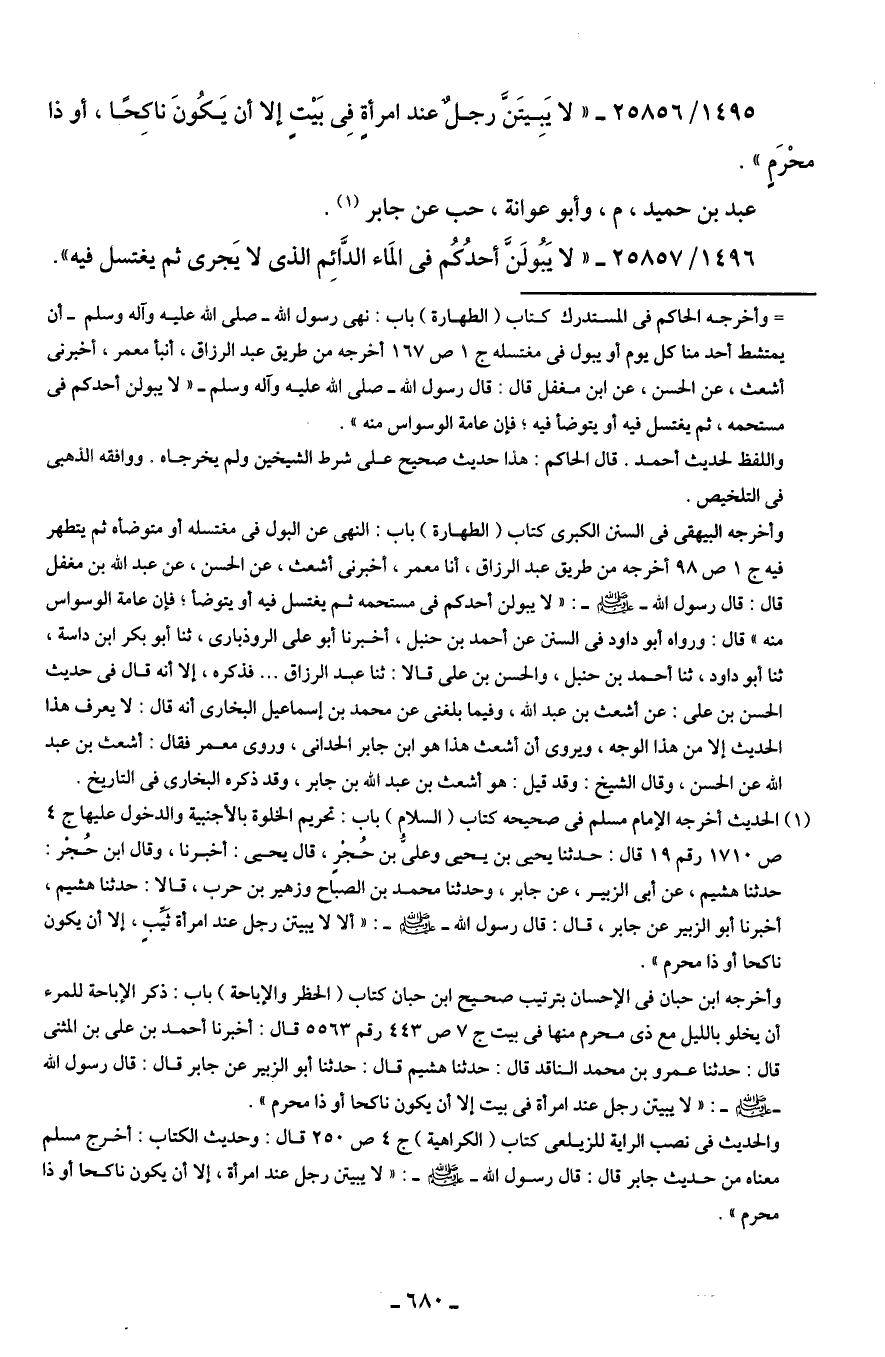 ١٤٩٥/ ٢٥٨٥٦ ـ « لا يَبِيتَنَّ رجلٌ عند امرأةٍ فِى بَيْتٍ إلا أن يَكُونَ ناكِحًا ، أو ذا
محْرَمٍ » .
عبد بن حميد ، م ، وأبو عوانة ، حب عن جابر (١) .
١٤٩٦/ ٢٥٨٥٧ ـ « لا يَبُولَنَّ أحدُكُم فى الَماء الدَّائِم الذى لا يَجرى ثم يغتسل فيه».
= وأخرجه الحاكم فى المستدرك كتاب ( الطهارة ) باب : نهى رسول الله ـ صلى الله عليه وآله وسلم ـ أن
يمتشط أحد منا كل يوم أو يبول فى مغتسله ج ١ ص ١٦٧ أخرجه من طريق عبد الرزاق ، أنبأ معمر ، أخبرنى
أشعث ، عن الحسن ، عن ابن مغفل قال : قال رسول الله ـ صلى الله عليه وآله وسلم ـ « لا يبولن أحدكم فى
مستحمه ، ثم يغتسل فيه أو يتوضأ فيه ؛ فإن عامة الوسواس منه » .
واللفظ لحديث أحمد . قال الحاكم : هذا حديث صحيح على شرط الشيخين ولم يخرجاه . ووافقه الذهبى
فى التلخيص .
وأخرجه البيهقى فى السنن الكبرى كتاب ( الطهارة ) باب : النهى عن البول فى مغتسله أو متوضأه ثم يتطهر
فيه ج ١ ص ٩٨ أخرجه من طريق عبد الرزاق ، أنا معمر ، أخبرنى أشعث ، عن الحسن ، عن عبد الله بن مغفل
قال : قال رسول الله ـ ﷺ ـ : « لا يبولن أحدكم فى مستحمه ثم يغتسل فيه أو يتوضأ ؛ فإن عامة الوسواس
منه » قال : ورواه أبو داود فى السنن عن أحمد بن حنبل ، أخبرنا أبو على الروذبارى ، ثنا أبو بكر ابن داسة ،
ثنا أبو داود ، ثنا أحمد بن حنبل ، والحسن بن على قالا : ثنا عبد الرزاق ... فذكره ، إلا أنه قال فى حديث
الحسن بن على : عن أشعث بن عبد الله ، وفيما بلغنى عن محمد بن إسماعيل البخارى أنه قال : لا يعرف هذا
الحديث إلا من هذا الوجه ، ويروى أن أشعث هذا هو ابن جابر الحدانى ، وروى معمر فقال : أشعث بن عبد
الله عن الحسن ، وقال الشيخ : وقد قيل : هو أشعث بن عبد الله بن جابر ، وقد ذكره البخارى فى التاريخ .
(١) الحديث أخرجه الإمام مسلم فى صحيحه كتاب ( السلام ) باب : تحريم الخلوة بالأجنبية والدخول عليها ج ٤
ص ١٧١٠ رقم ١٩ قال : حدثنا يحيى بن يحيى وعلىُّ بن حُجْرٍ ، قال يحيى : أخبرنا ، وقال ابن حُجْر :
حدثنا هشيم ، عن أبى الزبير ، عن جابر ، وحدثنا محمد بن الصباح وزهير بن حرب ، قالا : حدثنا هشيم ،
أخبرنا أبو الزبير عن جابر ، قال : قال رسول الله ـ ﷺ ـ : « ألا لا يبيتن رجل عند امرأة ثَيِّبٍ ، إلا أن يكون
ناكحا أو ذا محرم » .
وأخرجه ابن حبان فى الإحسان بترتيب صحيح ابن حبان كتاب ( الحظر والإباحة ) باب : ذكر الإباحة للمرء
أن يخلو بالليل مع ذى محرم منها فى بيت ج ٧ ص ٤٤٣ رقم ٥٥٦٣ قال : أخبرنا أحمد بن على بن المثنى
قال : حدثنا عمرو بن محمد الناقد قال : حدثنا هشيم قال : حدثنا أبو الزبير عن جابر قال : قال رسول الله
ـ ﷺ ـ : « لا يبيتن رجل عند امرأة فى بيت إلا أن يكون ناكحا أو ذا محرم » .
والحديث فى نصب الراية للزيلعى كتاب ( الكراهية ) ج ٤ ص ٢٥٠ قال : وحديث الكتاب : أخرج مسلم
معناه من حديث جابر قال : قال رسول الله ـ ﷺ ـ : « لا يبيتن رجل عند امرأة ، إلا أن يكون ناكحا أو ذا
محرم » .
ـ ٦٨٠ ـ